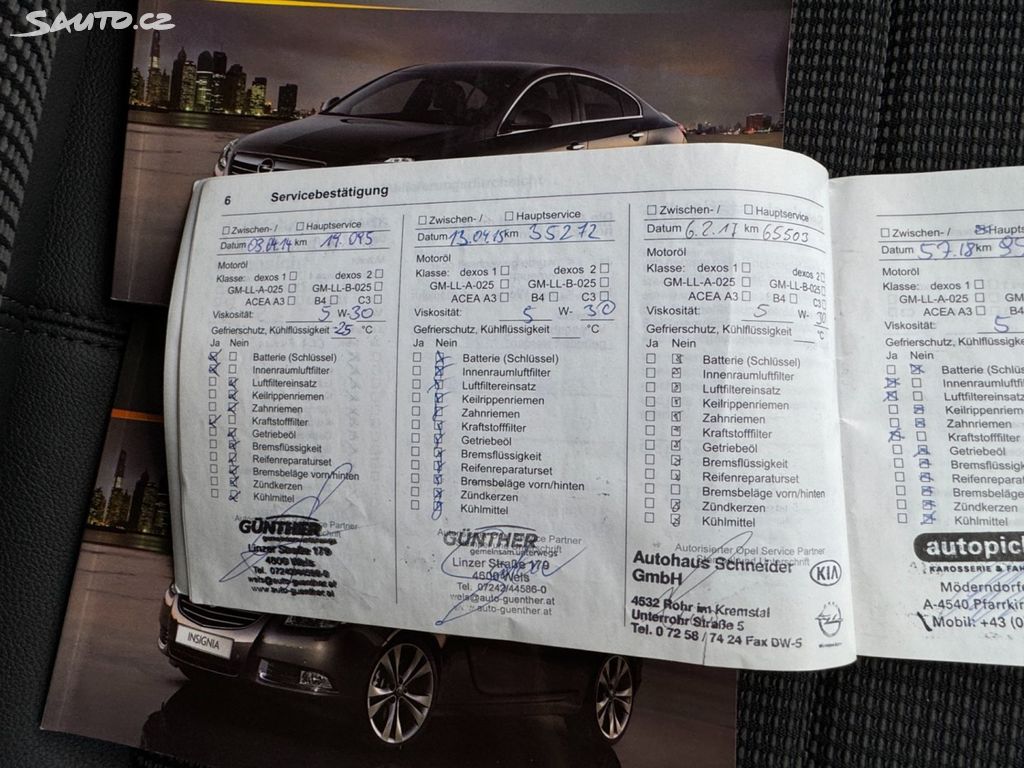 SAUTO.CZ
6 Servicebestätigung
☐ Zwischen- / ☐ Hauptservice
Datum 03.04.14 km 19.095
Motoröl
Klasse: dexos 1 ☐ dexos 2 ☐
GM-LL-A-025 ☐ GM-LL-B-025 ☐
ACEA A3 ☐ B4 ☐ C3 ☐
Viskosität: 5 W-30
Gefrierschutz, Kühlflüssigkeit -25 °C
Ja Nein
Batterie (Schlüssel)
Innenraumluftfilter
Luftfiltereinsatz
Keilrippenriemen
Zahnriemen
Kraftstofffilter
Getriebeöl
Bremsflüssigkeit
Reifenreparaturset
Bremsbeläge vorn/hinten
Zündkerzen
Kühlmittel
GÜNTHER
gemeinsam.unterwegs
Linzer Straße 179
4600 Wels
Tel. 07242/44586-0
wels@auto-guenther.at
www.auto-guenther.at
☐ Zwischen- / ☐ Hauptservice
Datum 13.04.15 km 35272
Motoröl
Klasse: dexos 1 ☐ dexos 2 ☐
GM-LL-A-025 ☐ GM-LL-B-025 ☐
ACEA A3 ☐ B4 ☐ C3 ☐
Viskosität: 5 W-30
Gefrierschutz, Kühlflüssigkeit °C
Ja Nein
Batterie (Schlüssel)
Innenraumluftfilter
Luftfiltereinsatz
Keilrippenriemen
Zahnriemen
Kraftstofffilter
Getriebeöl
Bremsflüssigkeit
Reifenreparaturset
Bremsbeläge vorn/hinten
Zündkerzen
Kühlmittel
GÜNTHER
gemeinsam.unterwegs
Linzer Straße 179
4600 Wels
Tel. 07242/44586-0
wels@auto-guenther.at
www.auto-guenther.at
☐ Zwischen- / ☐ Hauptservice
Datum 6.2.17 km 65503
Motoröl
Klasse: dexos 1 ☐ dexos 2 ☐
GM-LL-A-025 ☐ GM-LL-B-025 ☐
ACEA A3 ☐ B4 ☐ C3 ☐
Viskosität: 5 W-30
Gefrierschutz, Kühlflüssigkeit °C
Ja Nein
Batterie (Schlüssel)
Innenraumluftfilter
Luftfiltereinsatz
Keilrippenriemen
Zahnriemen
Kraftstofffilter
Getriebeöl
Bremsflüssigkeit
Reifenreparaturset
Bremsbeläge vorn/hinten
Zündkerzen
Kühlmittel
Autorisierter Opel Service Partner
Autohaus Schneider
GmbH
KIA
4532 Rohr im Kremstal
Unterrohr Straße 5
Tel. 0 72 58 / 74 24 Fax DW-5
☐ Zwischen- / ☒ Haupts
Datum 5.7.18 km
Motoröl
Klasse: dexos 1 ☐
GM-LL-A-025 ☐
ACEA A3 ☐ B4
Viskosität: 5
Gefrierschutz, Kühlflüssigk
Ja Nein
Batterie (Schlüss
Innenraumluftfilter
Luftfiltereinsatz
Keilrippenriemen
Zahnriemen
Kraftstofffilter
Getriebeöl
Bremsflüssigkeit
Reifenreparaturs
Bremsbeläge vo
Zündkerzen
Kühlmittel
autopic
KAROSSERIE & FAH
Möderndorfe
A-4540 Pfarrkir
Mobil: +43 (0
INSIGNIA